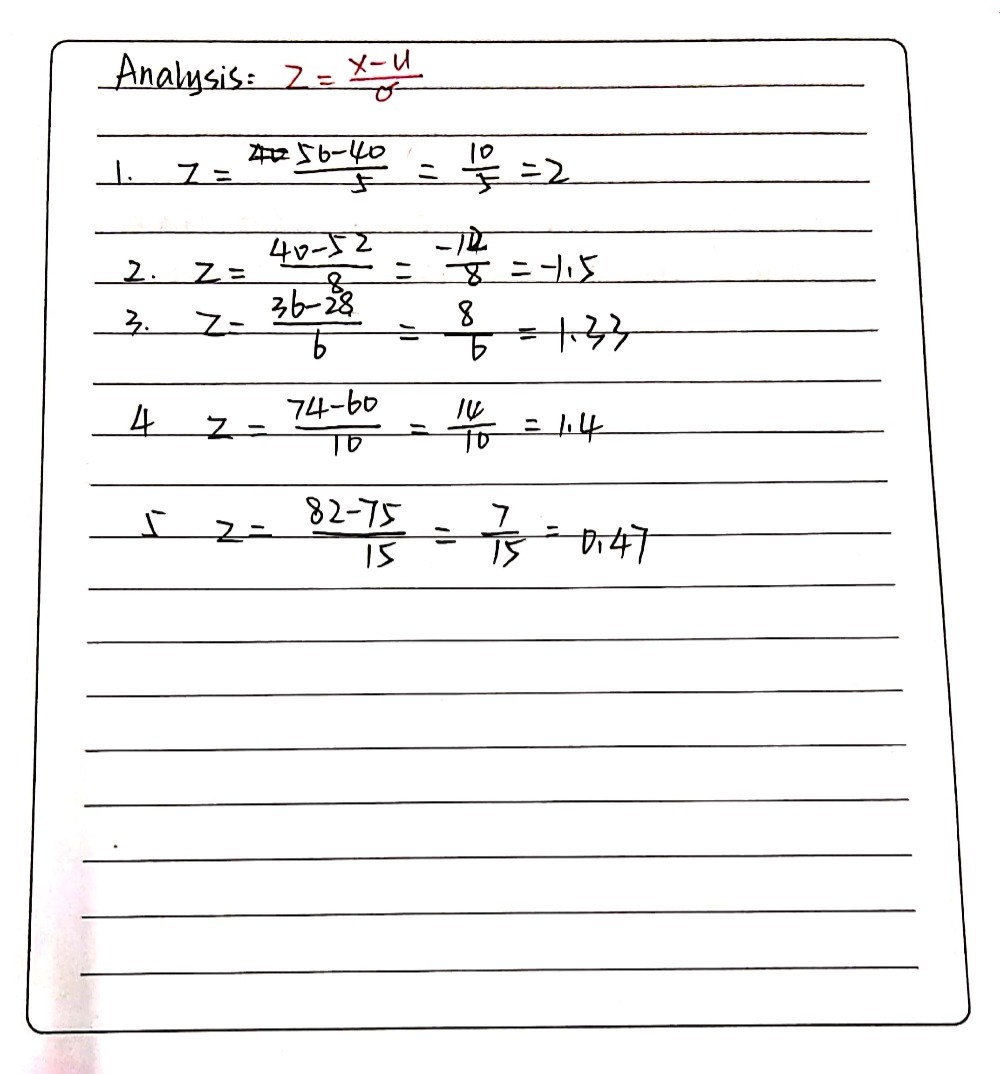 Analysis: Z = (x-u)/σ
1. Z = (56-40)/5 = 10/5 = 2
2. Z = (40-52)/8 = -12/8 = -1.5
3. Z = (36-28)/6 = 8/6 = 1.33
4 Z = (74-60)/10 = 14/10 = 1.4
5 Z = (82-75)/15 = 7/15 = 0.47